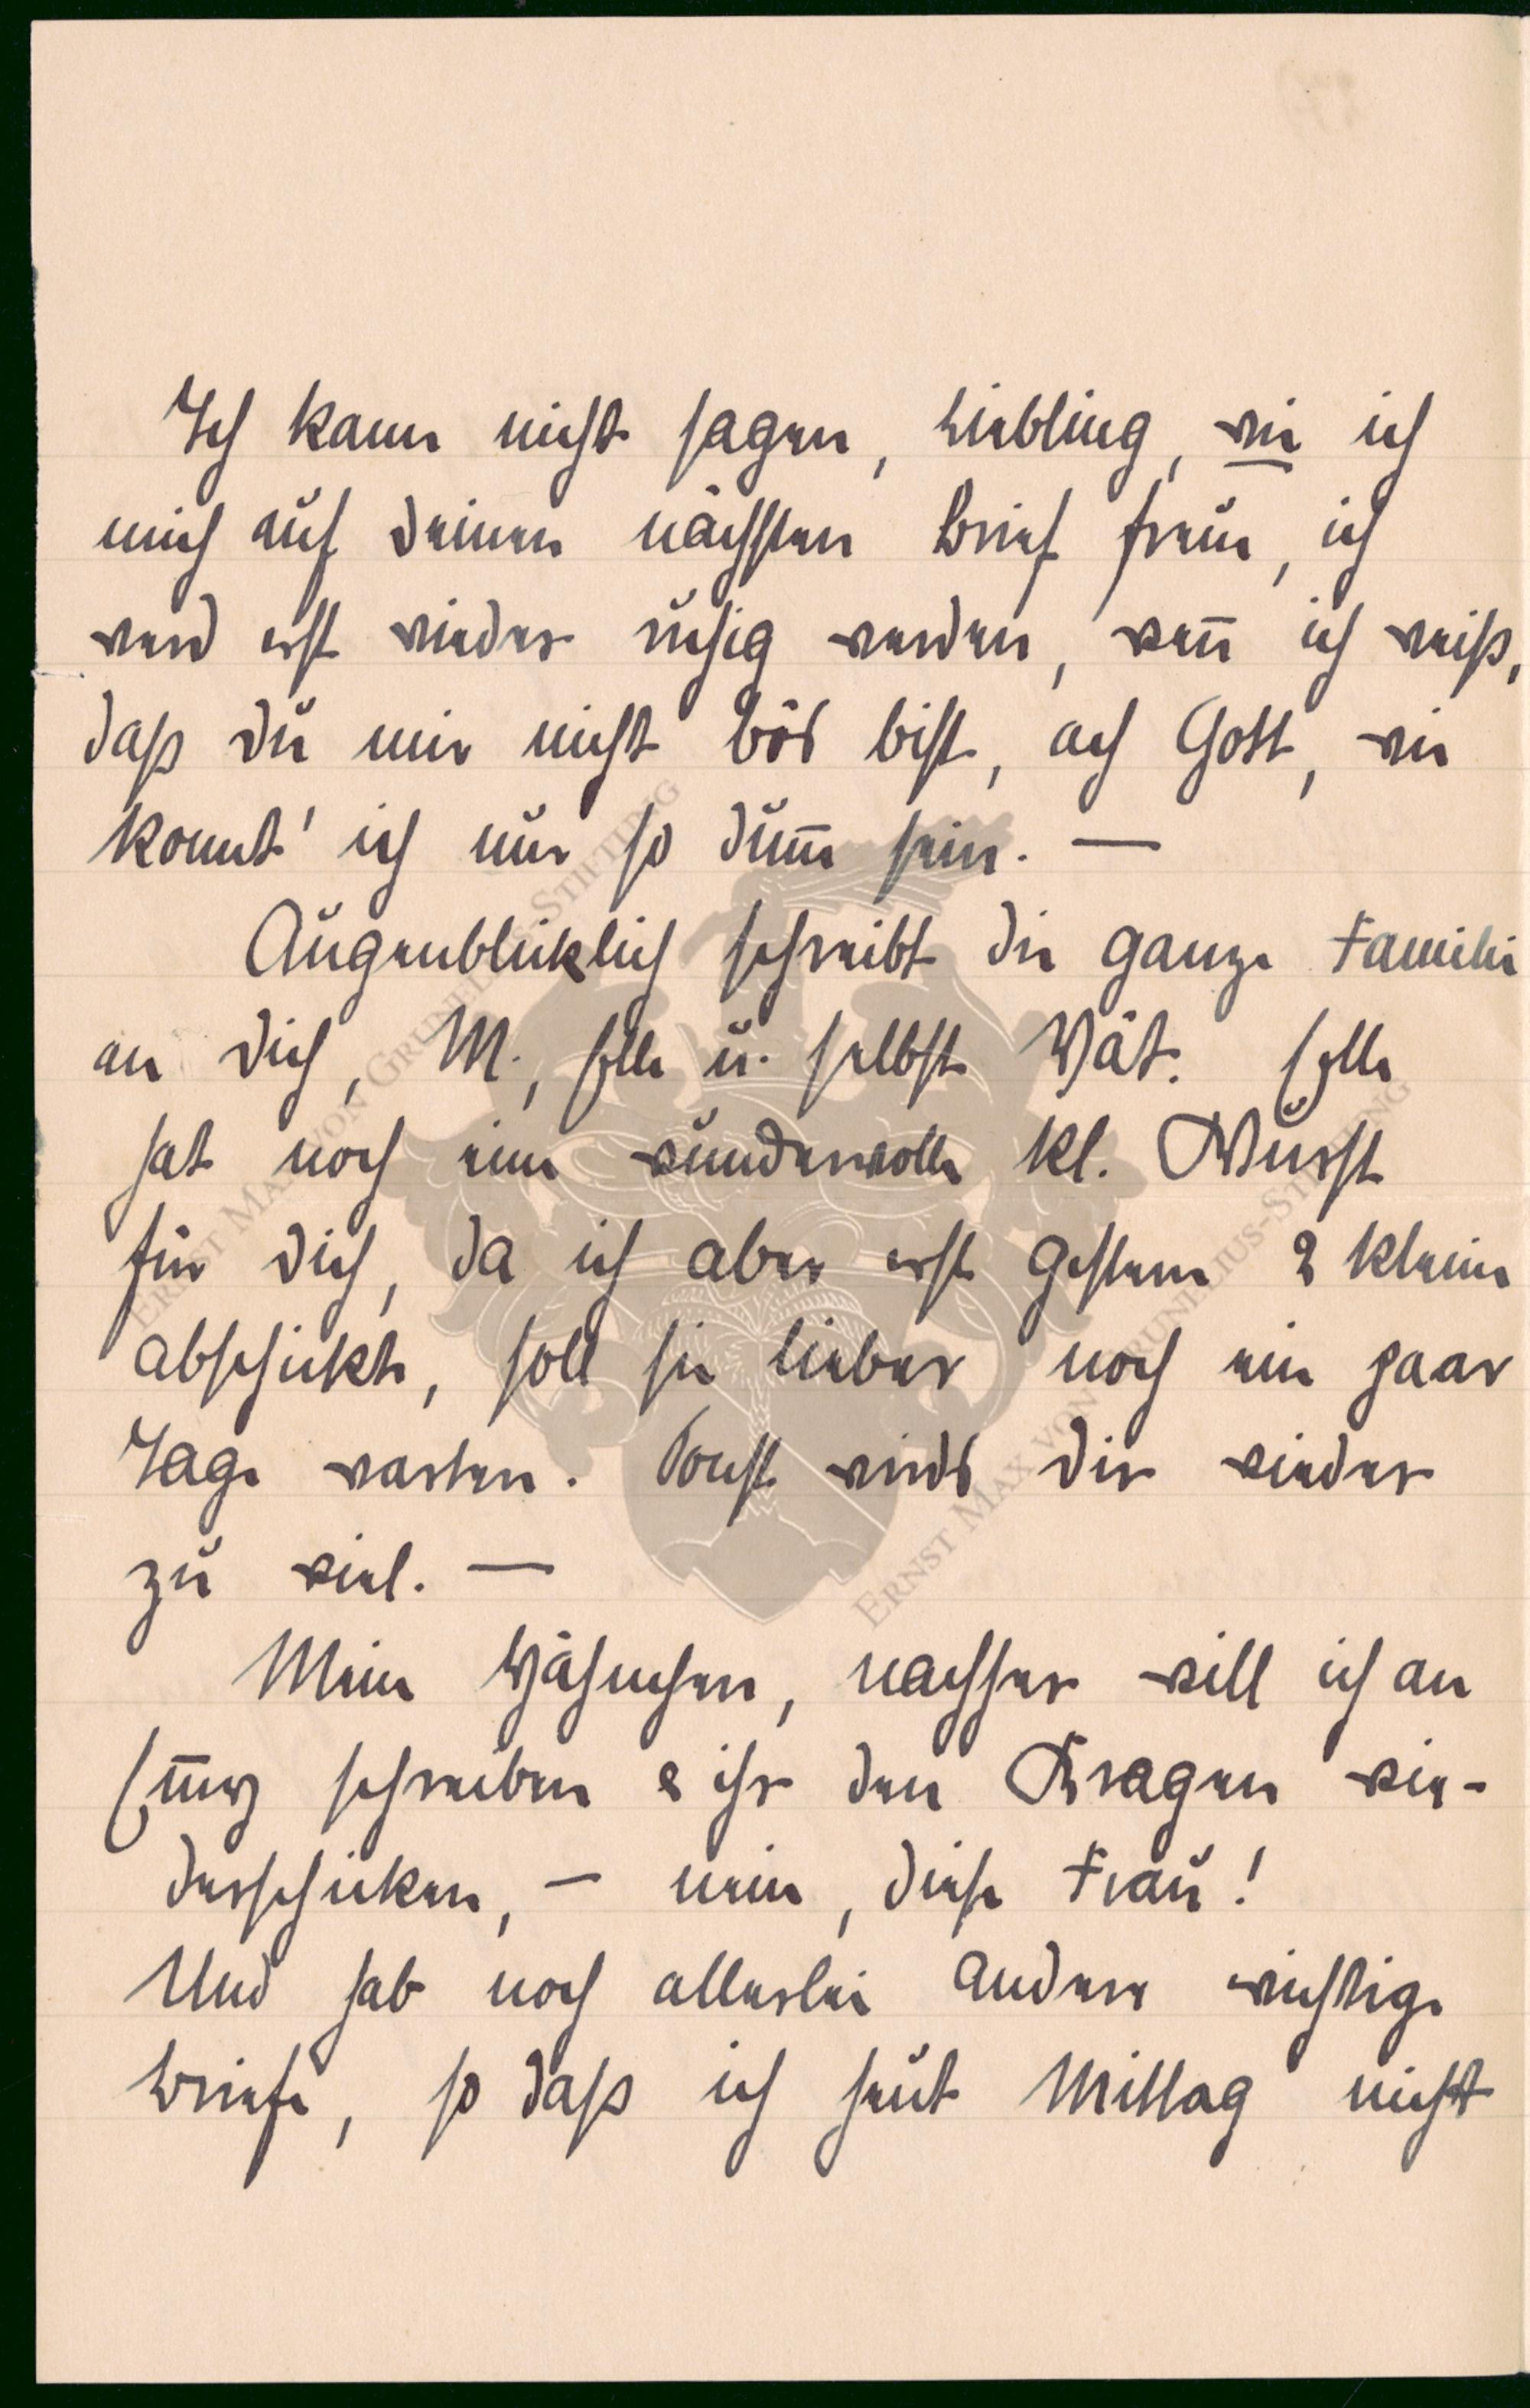 Ich kann nicht sagen, Liebling, wie ich
mich auf deinen nächsten Brief freue, ich
werd erst wieder ruhig werden, wen̅ ich weiß,
daß du mir nicht bös bist, ach Gott, wie
konnt' ich nur so dum̅ sein. —
Augenblicklich schreibt die ganze Familie
an dich, M., Elle u. selbst Vät. Elle
hat noch eine wundervolle kl. Wurst
für dich, da ich aber erst gestern 2 kleine
abschickte, soll sie lieber noch ein paar
Tage warten. Sonst wirds dir wieder
zu viel. —
Mein, nachher will ich an
Em̅y schreiben & ihr den Kragen wie-
derschicken, – nein, diese Frau!
Und hab noch allerlei andere wichtige
Briefe, so daß ich heut Mittag nicht
ERNST MAX VON GRUNELIUS-STIFTUNG
ERNST MAX VON GRUNELIUS-STIFTUNG